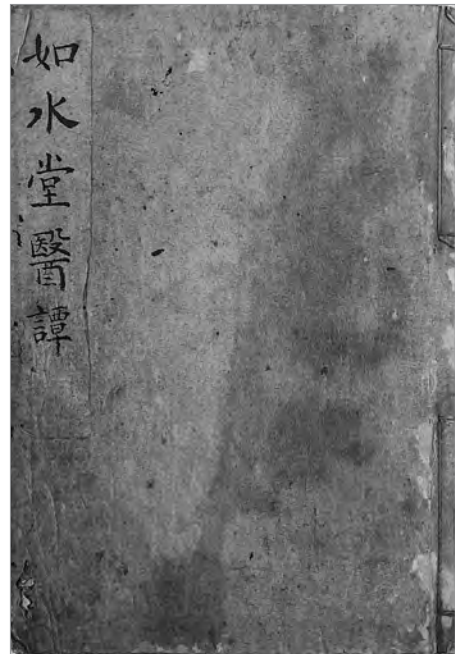 如水堂醫譚